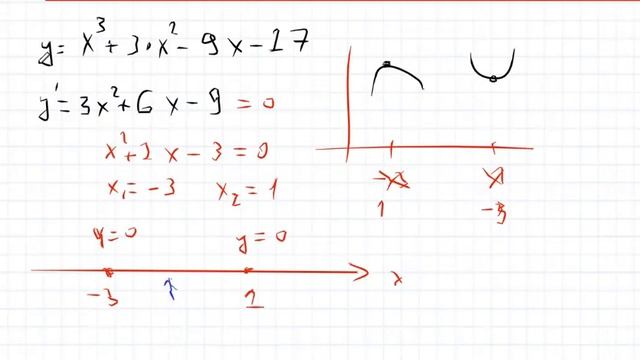 y = x³ + 3·x² - 9x - 17
y' = 3x² + 6x - 9 = 0
x² + 2x - 3 = 0
x₁ = -3 x₂ = 1
y = 0 y = 0
-3 1 x
1 -3